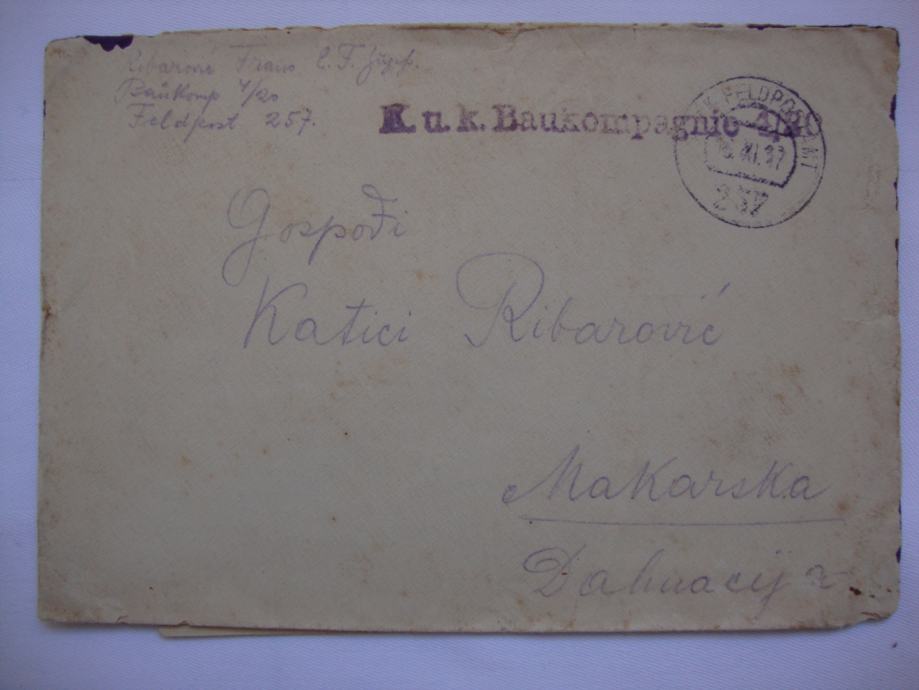 Ribarović Frano E. F. Zugsf.
Baukomp 4/20
Feldpost 257.
K. u. k. Baukompagnie 4/20
K.u.K. FELDPOSTAMT
XI. 17
257
Gospođi
Katici Ribarović
Makarska
Dalmacija